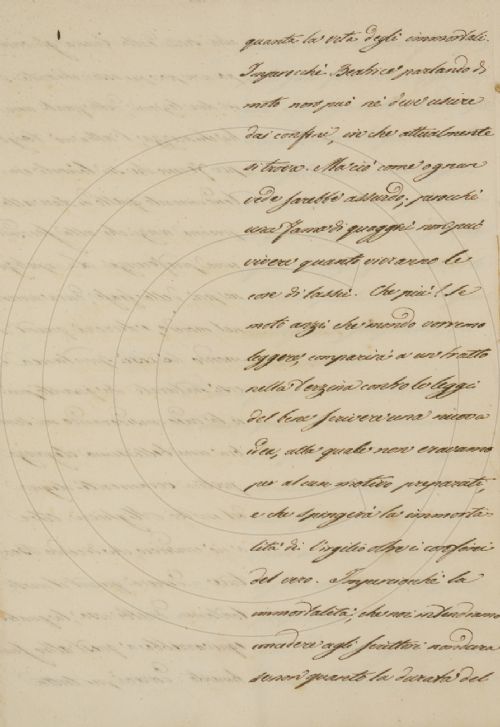 quanto la vita degli immortali.
Imperocchè Beatrice parlando di
moto non può nè deve uscire
dai confini, in che attualmente
si trova. Ma ciò come ognun
vede sarebbe assurdo; perocchè
una fama di quaggiù non può
vivere quanto vivranno le
cose di lassù. Che più! Se
moto anzi che mondo vorremo
leggere, comparirà a un tratto
nella Terzina contro le leggi
del bene scrivere una nuova
idea, alla quale non eravamo
per alcun motivo preparati,
e che spingerà la immorta
lità di Virgilio oltre i confini
del vero. Imperciocchè la
immortalità, che noi intendiamo
accadere agli scrittori non dura
senon quanto la durata del